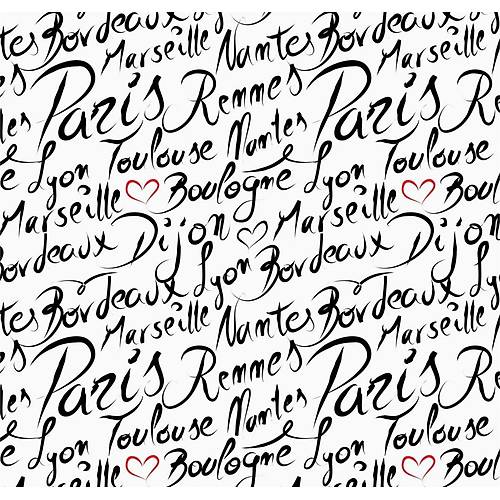 ntes Bordeaux Marseille Nantes Bordeaux
Paris Remmes Paris Remmes
les Toulouse Nantes Toulouse
e Lyon Boulogne Lyon Boul
Marseille Dijon Marseille Dijon
Bordeaux Lyon Bordeaux Lyon
tes Bordeaux Marseille Nantes Bordeaux
Paris Remmes Paris Remmes
les Toulouse Nantes Toulouse
e Lyon Boulogne Lyon Boul
Marseille Marseille